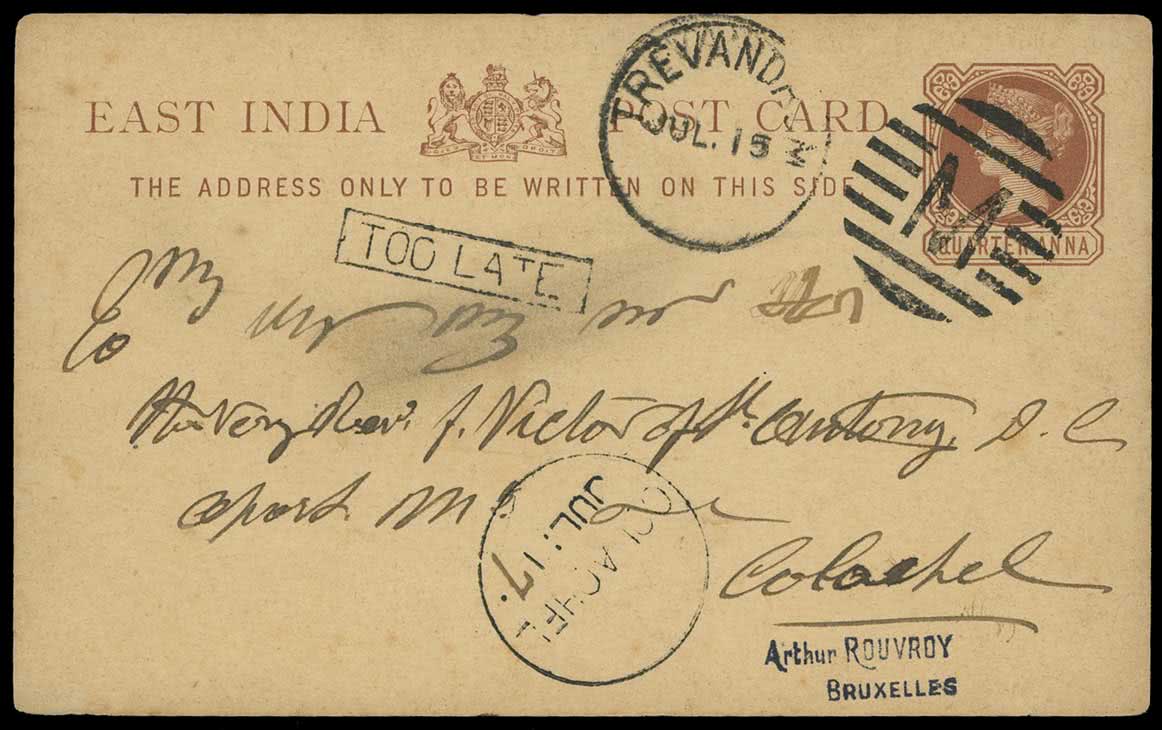 EAST INDIA POST CARD
THE ADDRESS ONLY TO BE WRITTEN ON THIS SIDE
QUARTER ANNA
TREVANDRUM
JUL. 15
TOO LATE
To
The Very Rev. f. Victor of St. Antony, D. C
Apost.
Colachel
COLACHEL
JUL. 17.
Arthur ROUVROY
BRUXELLES